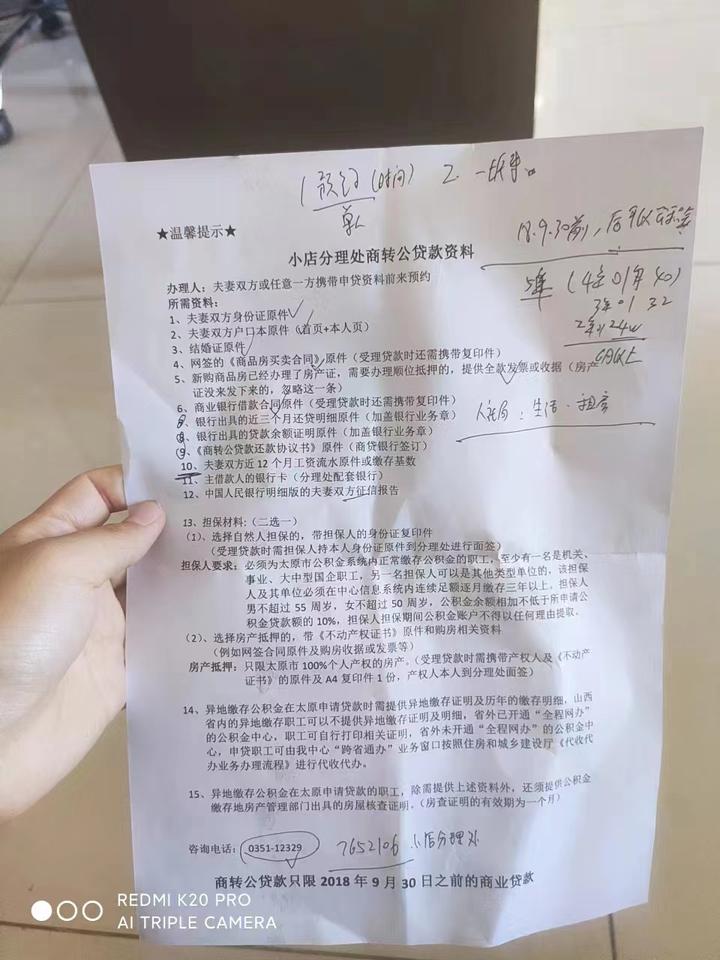 1 预约(时间) 2.
★温馨提示★
18.9.30前,
小店分理处商转公贷款资料
办理人:夫妻双方或任意一方携带申贷资料前来预约
所需资料:
1、夫妻双方身份证原件
2、夫妻双方户口本原件(首页+本人页)
3、结婚证原件
4、网签的《商品房买卖合同》原件(受理贷款时还需携带复印件)
5、新购商品房已经办理了房产证,需要办理顺位抵押的,提供全款发票或收据(房产
证没来发下来的,忽略这一条)
6、商业银行借款合同原件(受理贷款时还需携带复印件)
7、银行出具的近三个月还贷明细原件(加盖银行业务章)
8、银行出具的贷款余额证明原件(加盖银行业务章)
9、《商转公贷款还款协议书》原件(商贷银行签订)
10、夫妻双方近12个月工资流水原件或缴存基数
11、主借款人的银行卡(分理处配套银行)
12、中国人民银行明细版的夫妻双方征信报告
13、担保材料:(二选一)
(1)、选择自然人担保的,带担保人的身份证复印件
(受理贷款时需担保人持本人身份证原件到分理处进行面签)
担保人要求:必须为太原市公积金系统内正常缴存公积金的职工,至少有一名是机关、
事业、大中型国企职工,另一名担保人可以是其他类型单位的,该担保
人及其单位必须在中心信息系统内连续足额逐月缴存三年以上。担保人
男不超过 55 周岁,女不超过 50 周岁,公积金余额相加不低于所申请公
积金贷款额的10%,担保人担保期间公积金账户不得以任何理由提取。
(2)、选择房产抵押的,带《不动产权证书》原件和购房相关资料
(例如网签合同原件及购房收据或发票等)
房产抵押:只限太原市100%个人产权的房产。(受理贷款时需携带产权人及《不动产
证书》的原件及A4 复印件 1 份,产权人本人到分理处面签)
14、异地缴存公积金在太原申请贷款时需提供异地缴存证明及历年的缴存明细,山西
省内的异地缴存职工可以不提供异地缴存证明及明细,省外已开通“全程网办”
的公积金中心,职工可自行打印相关证明,省外未开通“全程网办”的公积金中
心,申贷职工可由我中心“跨省通办”业务窗口按照住房和城乡建设厅《代收代
办业务办理流程》进行代收代办。
15、异地缴存公积金在太原申请贷款的职工,除需提供上述资料外,还须提供公积金
缴存地房产管理部门出具的房屋核查证明。(房查证明的有效期为一个月)
咨询电话:0351-12329 7652106 小店分理处
商转公贷款只限 2018 年 9 月 30 日之前的商业贷款
REDMI K20 PRO
AI TRIPLE CAMERA